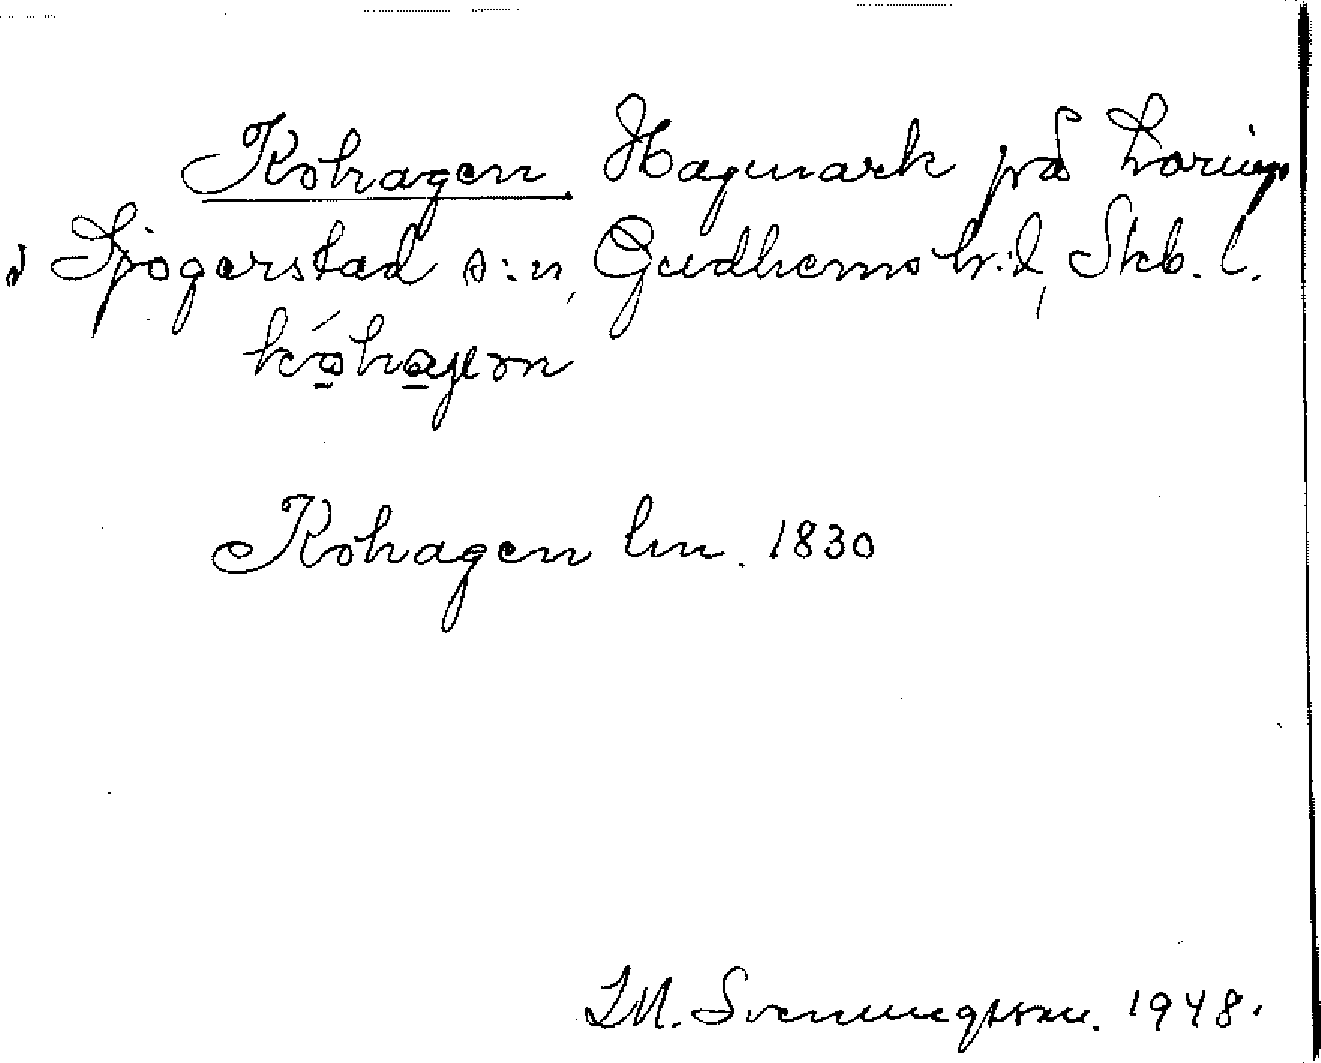 Kohagen. Hagmark på Loringa
i Sjogerstad s:n, Gudhems h:d, Skb. l.
kóhagen
Kohagen lm. 1830
I.M. Svenningsson. 1948.